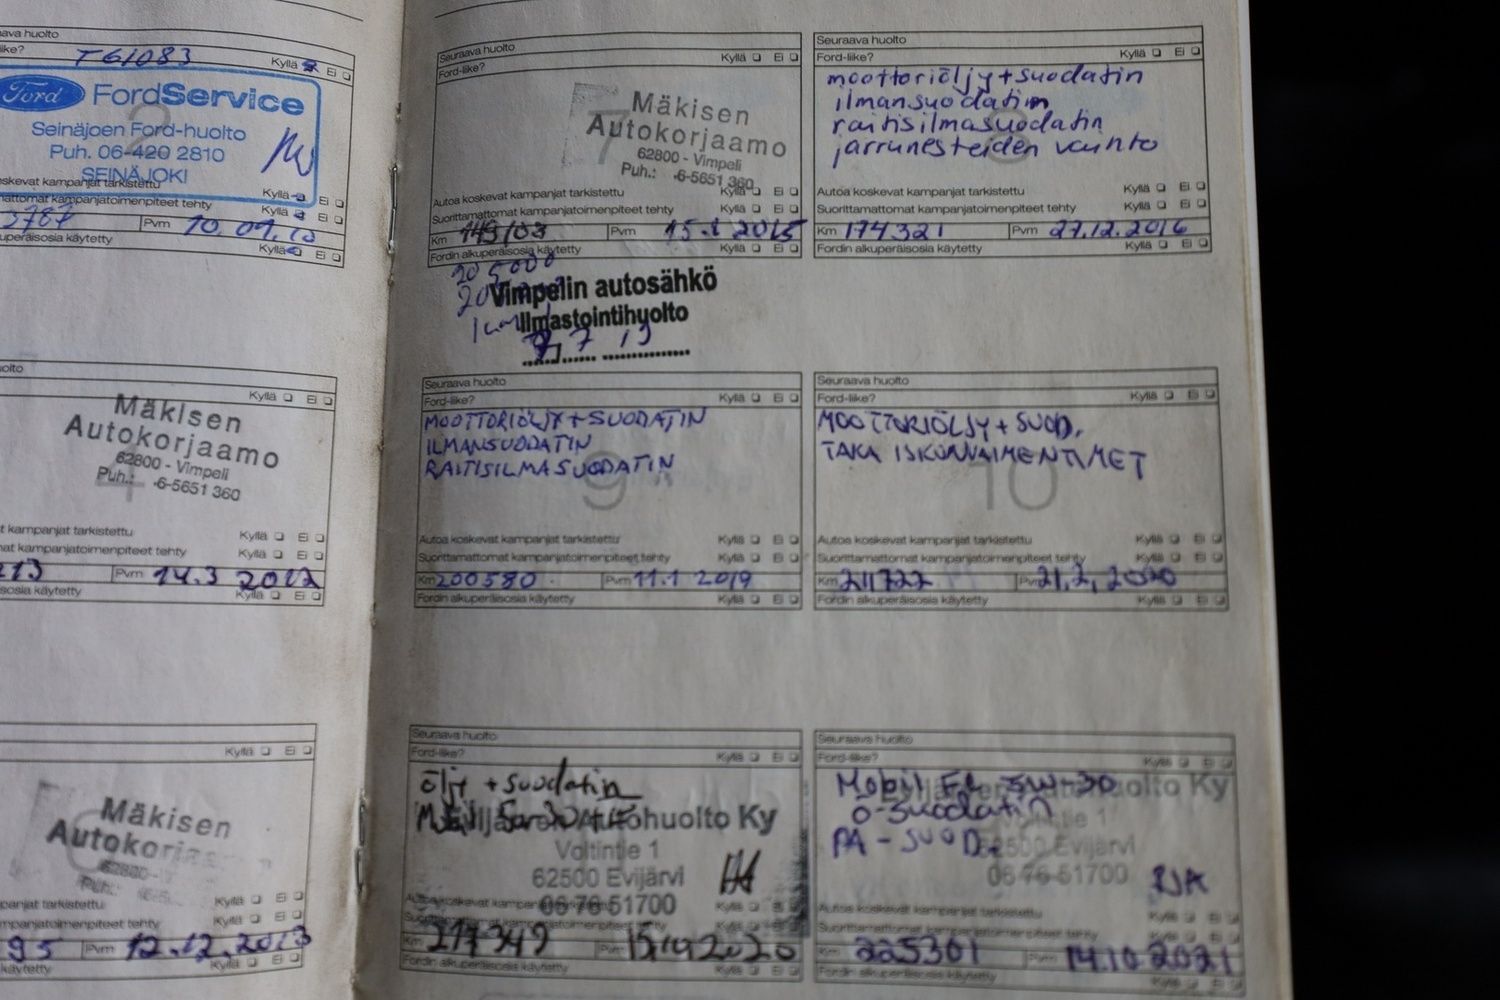 ava huolto
ike?
Kyllä Ei
T61083
Ford FordService
Seinäjoen Ford-huolto
Puh. 06-420 2810
SEINÄJOKI
skevat kampanjat tarkistettu Kyllä Ei
mattomat kampanjatoimenpiteet tehty Kyllä Ei
3787 Pvm 10.09.10
uperäisosia käytetty Kyllä Ei
olto
Kyllä Ei
Mäkisen
Autokorjaamo
62800 - Vimpeli
Puh.: -6-5651 360
4
t kampanjat tarkistettu Kyllä Ei
at kampanjatoimenpiteet tehty Kyllä Ei
213 Pvm 14.3 2012
sosia käytetty Kyllä Ei
Kyllä Ei
Mäkisen
Autokorjaa
62800 - V
Puh.:
panjat tarkistettu Kyllä Ei
mpanjatoimenpiteet tehty Kyllä Ei
95 Pvm 12.12.2013
käytetty Kyllä Ei
Seuraava huolto
Ford-liike? Kyllä Ei
Mäkisen
7
Autokorjaamo
62800 - Vimpeli
Puh.: -6-5651 360
Autoa koskevat kampanjat tarkistettu Kyllä Ei
Suorittamattomat kampanjatoimenpiteet tehty Kyllä Ei
Km Pvm 2015
Fordin alkuperäisosia käytetty Kyllä Ei
205000
Vimpelin autosähkö
Ilmastointihuolto
7 19
Seuraava huolto
Ford-liike? Kyllä Ei
moottoriöljy+suodatin
ilmansuodatin
raitisilmasuodatin
jarrunesteiden vaihto
8
Autoa koskevat kampanjat tarkistettu Kyllä Ei
Suorittamattomat kampanjatoimenpiteet tehty Kyllä Ei
Km 174321 Pvm 27.12.2016
Fordin alkuperäisosia käytetty Kyllä Ei
Seuraava huolto
Ford-liike? Kyllä Ei
MOOTTORIÖLJY+SUODATIN
ILMANSUODATIN
RAITISILMASUODATIN
9
Autoa koskevat kampanjat tarkistettu Kyllä Ei
Suorittamattomat kampanjatoimenpiteet tehty Kyllä Ei
Km 200580 Pvm 11.1 2019
Fordin alkuperäisosia käytetty Kyllä Ei
Seuraava huolto
Ford-liike? Kyllä Ei
MOOTTORIÖLJY+SUOD.
TAKA ISKUNVAIMENTIMET
10
Autoa koskevat kampanjat tarkistettu Kyllä Ei
Suorittamattomat kampanjatoimenpiteet tehty Kyllä Ei
Km 211722 Pvm 21.2, 2020
Fordin alkuperäisosia käytetty Kyllä Ei
Seuraava huolto
Ford-liike? Kyllä Ei
öljy + suodatin
Autohuolto Ky
Voltintie 1
62500 Evijärvi
06 76 51700
Autoa koskevat kampanjat tarkistettu Kyllä Ei
Suorittamattomat kampanjatoimenpiteet tehty Kyllä Ei
Km 217349 Pvm 2020
Fordin alkuperäisosia käytetty Kyllä Ei
Seuraava huolto
Ford-liike? Kyllä Ei
Mobil 5W-30 huolto Ky
ö-suodatin
PA-SUOD.
62500 Evijärvi
06 76 51700
Autoa koskevat kampanjat tarkistettu Kyllä Ei
Suorittamattomat kampanjatoimenpiteet tehty Kyllä Ei
Km 225301 Pvm 14.10.2021
Fordin alkuperäisosia käytetty Kyllä Ei